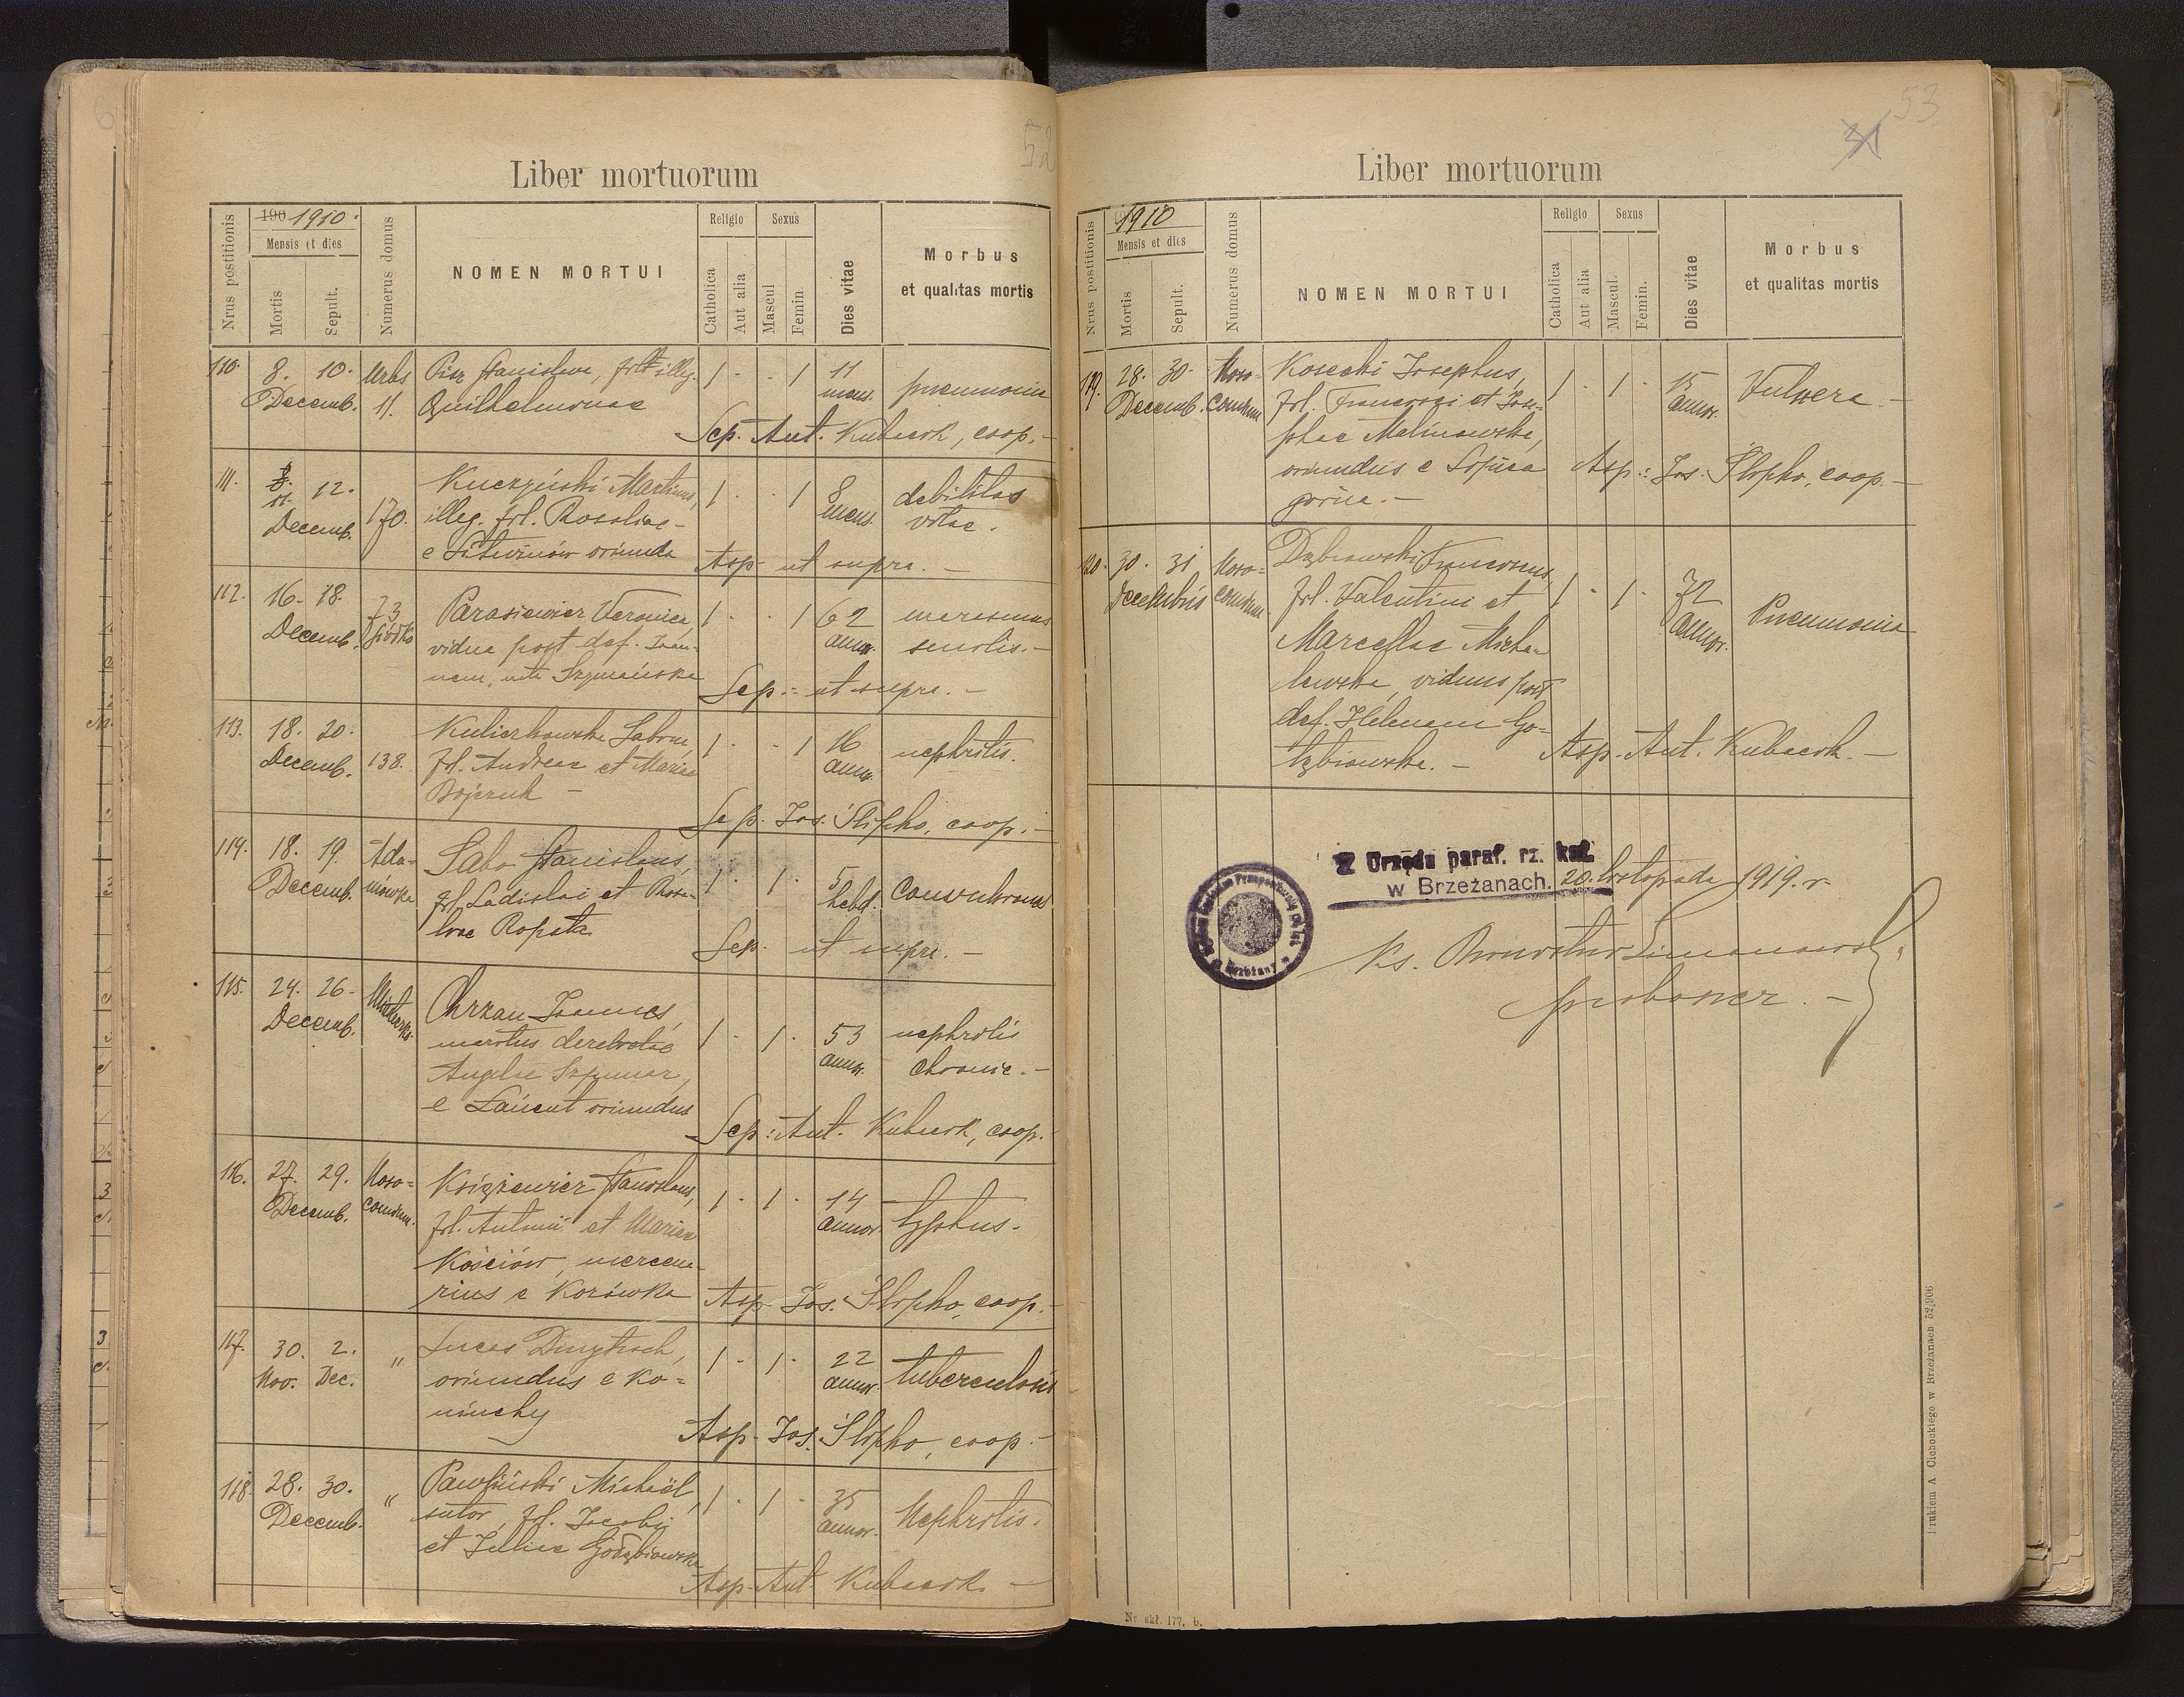 52
Liber mortuorum
Nrus postitionis
190 1910.
Mensis et dies
Mortis
Sepult.
Numerus domus
NOMEN MORTUI
Religio
Catholica
Aut alia
Sexus
Mascul
Femin
Dies vitae
Morbus
et qualitas mortis
110. 8. 10. Urbs Pisz Stanislava, illeg. 1 - - 1 11 pneumonia
Decemb. 11. Guilhelminae mens.
Sep. Ant. Kubacik, coop. -
111. 11. 12. Kuczyński 1 - - 1 8 debilitas
Decemb. 170. illeg. fil. Rosaliae mens. vitae.
e Litwinów oriunda
Asp. ut supra. -
112. 16. 18. 73 Parasiewicz Veronica, 1 - - 1 62 marasmus
Decemb. Siółko vidua post def. Joan- annor. senilis. -
nem, nata Szymańska
Sep. = ut supra. -
113. 18. 20. 1 - - 1 16 nephritis.
Decemb. 138. fil. Andreae et Mariae annor.
Bojczuk -
Sep. Jos. Ślipko, coop. -
114. 18. 19. Ada- Saba Stanislaus, 1 - 1 - 5 convulsiones
Decemb. mówka fil. Ladislai et Rosa- hebd.
liae Ropata
Sep. ut supra. -
115. 24. 26. Chrzan Joannes, 1 - 1 - 53 nephritis
Decemb. maritus derelictae annor. chronic. -
Angelae Szpunar,
e Łańcut oriundus
Sep.: Ant. Kubacik, coop.
116. 27. 29. Noso= Książkiewicz Stanislaus, 1 - 1 - 14 typhus.
Decemb. comium. fil. Antonii et Mariae annor.
Kościów, mercena-
rius e Kozówka
Asp. Jos. Ślipko, coop. -
117. 30. 2. " Lucas 1 - 1 - 22 tuberculosis
Nov. Dec. oriundus e Ko= annor.
niuchy
Asp. Jos. Ślipko, coop. -
118. 28. 30. " Pawliński Michaël, 1 - 1 - 35 Nephritis.
Decemb. sutor, fil. Jacobi annor.
et Juliae Gołąbiowska
Asp. Ant. Kubacik -
53
31
Liber mortuorum
Nrus postitionis
1910
Mensis et dies
Mortis
Sepult.
Numerus domus
NOMEN MORTUI
Religio
Catholica
Aut alia
Sexus
Mascul.
Femin.
Dies vitae
Morbus
et qualitas mortis
119. 28. 30. Noso- Kosecki Josephus, 1 - 1 - 15 Vulnera -
Decemb. comium fil. Francisci et Jose- annor.
phae Malinowska,
oriundus e Lipica
górna. -
Asp.: Jos. Ślipko, coop. -
120. 30. 31. Noso= Dąbrowski Franciscus, 1 - 1 - 72 Pneumonia
Decembris comium. fil. Valentini et annor.
Marcellae Micha-
lewska, viduus post
def. Helenam Go-
łąbiowska. -
Asp. Ant. Kubacik. -
Z Urzędu paraf. rz. kat.
w Brzeżanach. 20. listopada 1919. r.
Ks.
proboszcz. -
Drukiem A Cichockiego w Brzeżanach 52,906
Nr skł. 177. b.